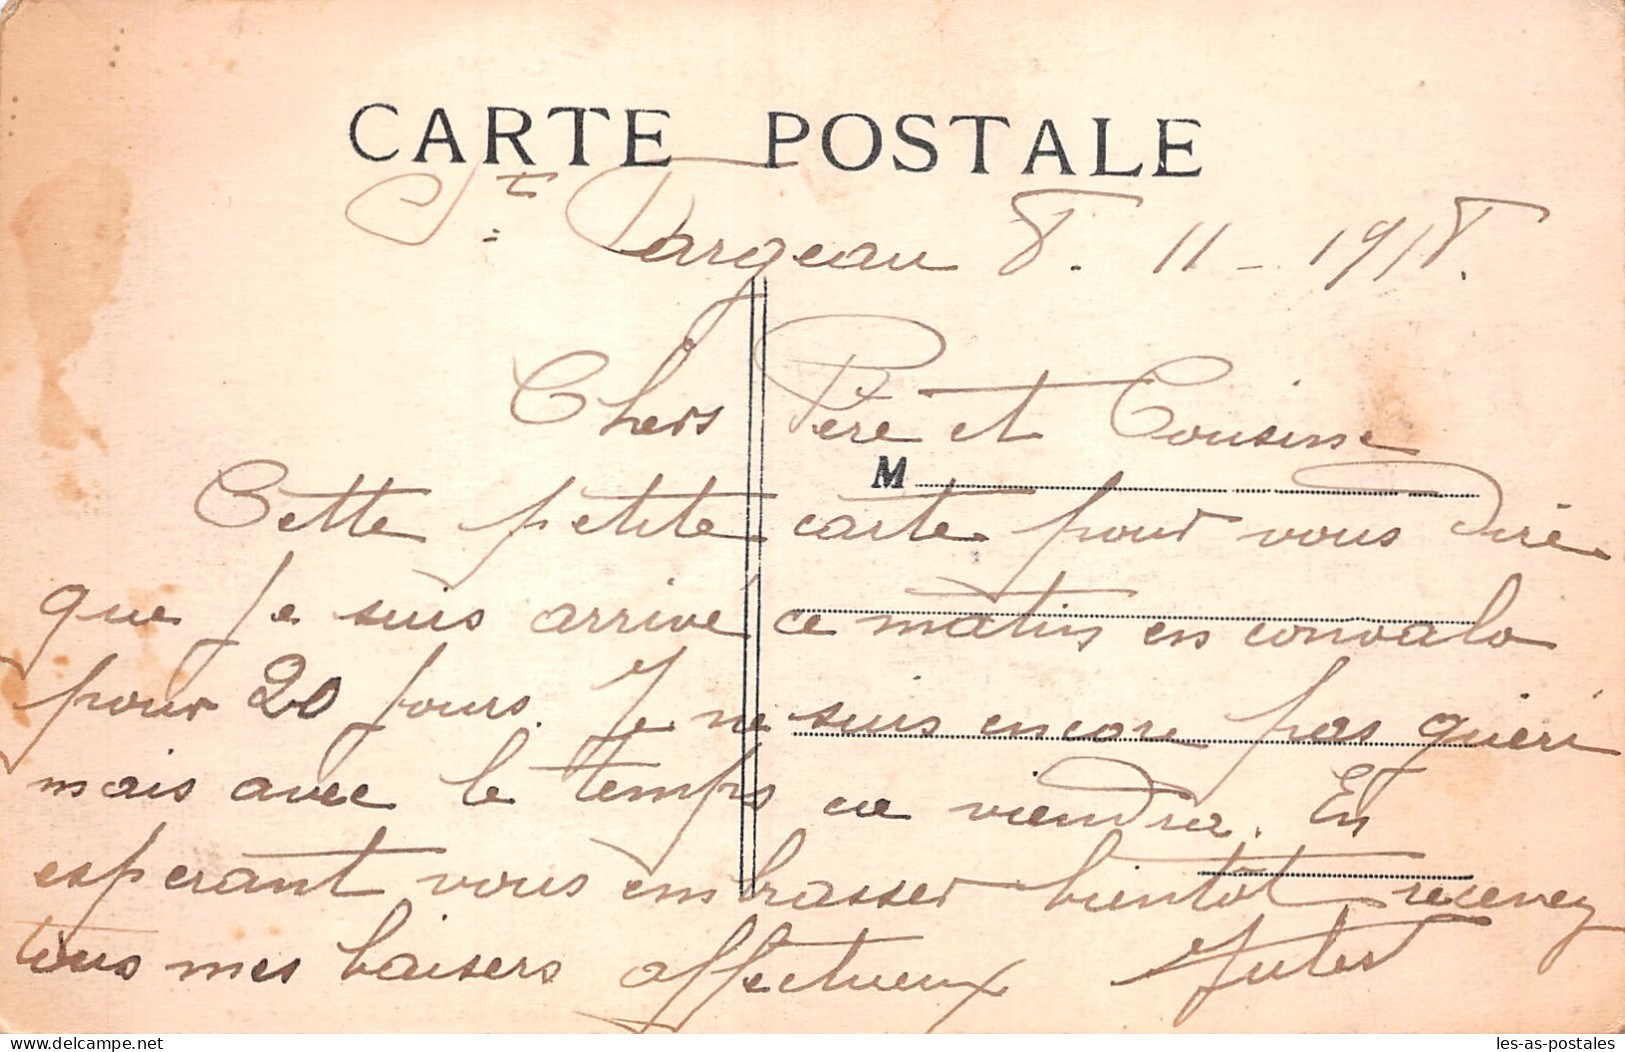 CARTE POSTALE
St Fargeau 8. 11 - 1918.
Chers Père et Cousine
M
Cette petite carte pour vous dire
que je suis arrivé ce matin en convalo
pour 20 jours. Je ne suis encore pas guéri
mais avec le temps ce viendra. En
espérant vous embrasser bientôt recevez
tous mes baisers affectueux Jules
les-as-postales